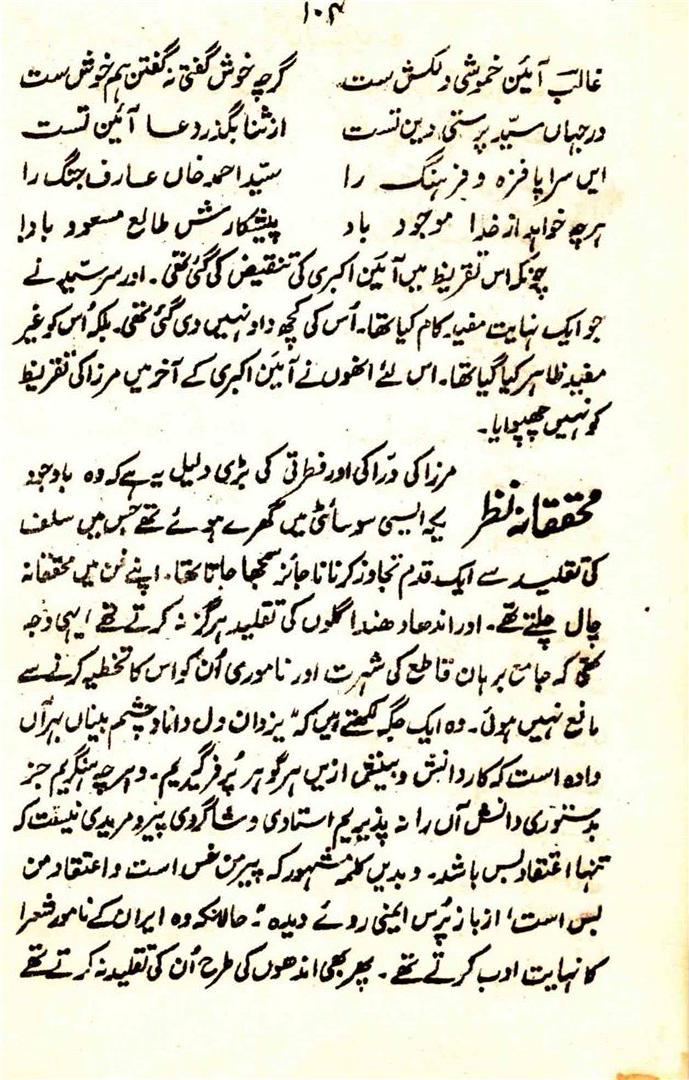 ۱۰۴
غالبؔ آئین خموشی دلکش ست گرچہ خوش گفتی نہ گفتن ہم خوش ست
درجہاں سیّد پرستی دین تست از ثنا بگذر دعا آئین تست
ایں سراپا فزہ و فرہنگ را سیّد احمد خاں عارف جنگ را
ہرچہ خواہد از خدا موجود باد پیشکارش طالع مسعود بادا
چونکہ اس تقریظ میں آئین اکبری کی تنقیض کی گئی تھی۔ اور سرسید نے
جو ایک نہایت مفید کام کیا تھا۔ اُس کی کچھ داد نہیں دی گئی تھی۔ بلکہ اُس کو غیر
مفید ظاہر کیا گیا تھا۔ اس لئے انھوں نے آئین اکبری کے آخر میں مرزا کی تقریظ
کو نہیں چھپوایا۔
مرزا کی درّاکی اور فطرتی کی بڑی دلیل یہ ہے کہ وہ باوجود
محققانہ نظر یکہ ایسی سوسائٹی میں گھرے ہوئے تھے جس میں سلف
کی تقلید سے ایک قدم تجاوز کرنا ناجائز سمجھا جاتا تھا۔ اپنے فن میں محققانہ
چال چلتے تھے۔ اور اندھا دھند اگلوں کی تقلید ہرگز نہ کرتے تھے ایہی وجہ
تھی کہ جامع برہان قاطع کی شہرت اور ناموری اُن کو اس کا تخطیہ کرنے سے
مانع نہیں ہوئی۔ وہ ایک جگہ لکھتے ہیں کہ "یزدان دل دانا و چشم بیناں بہرآں
دادہ است کہ کار دانش و بینش ازیں ہر دو گوہر برگیریم۔ وہرچہ بنگریم جز
بدستوری دانش آں را نہ پذیریم استادی و شاگردی پیرو مریدی نیست کہ
تنہا اعتقاد بس باشد۔ و بدیں کلمہ مشہور کہ پیر من خس است و اعتقاد من
بس است' از باز پُرس ایمنی روئے دیدہ"۔ حالانکہ وہ ایران کے نامور شعرا
کا نہایت ادب کرتے تھے۔ پھر بھی اندھوں کی طرح اُن کی تقلید نہ کرتے تھے